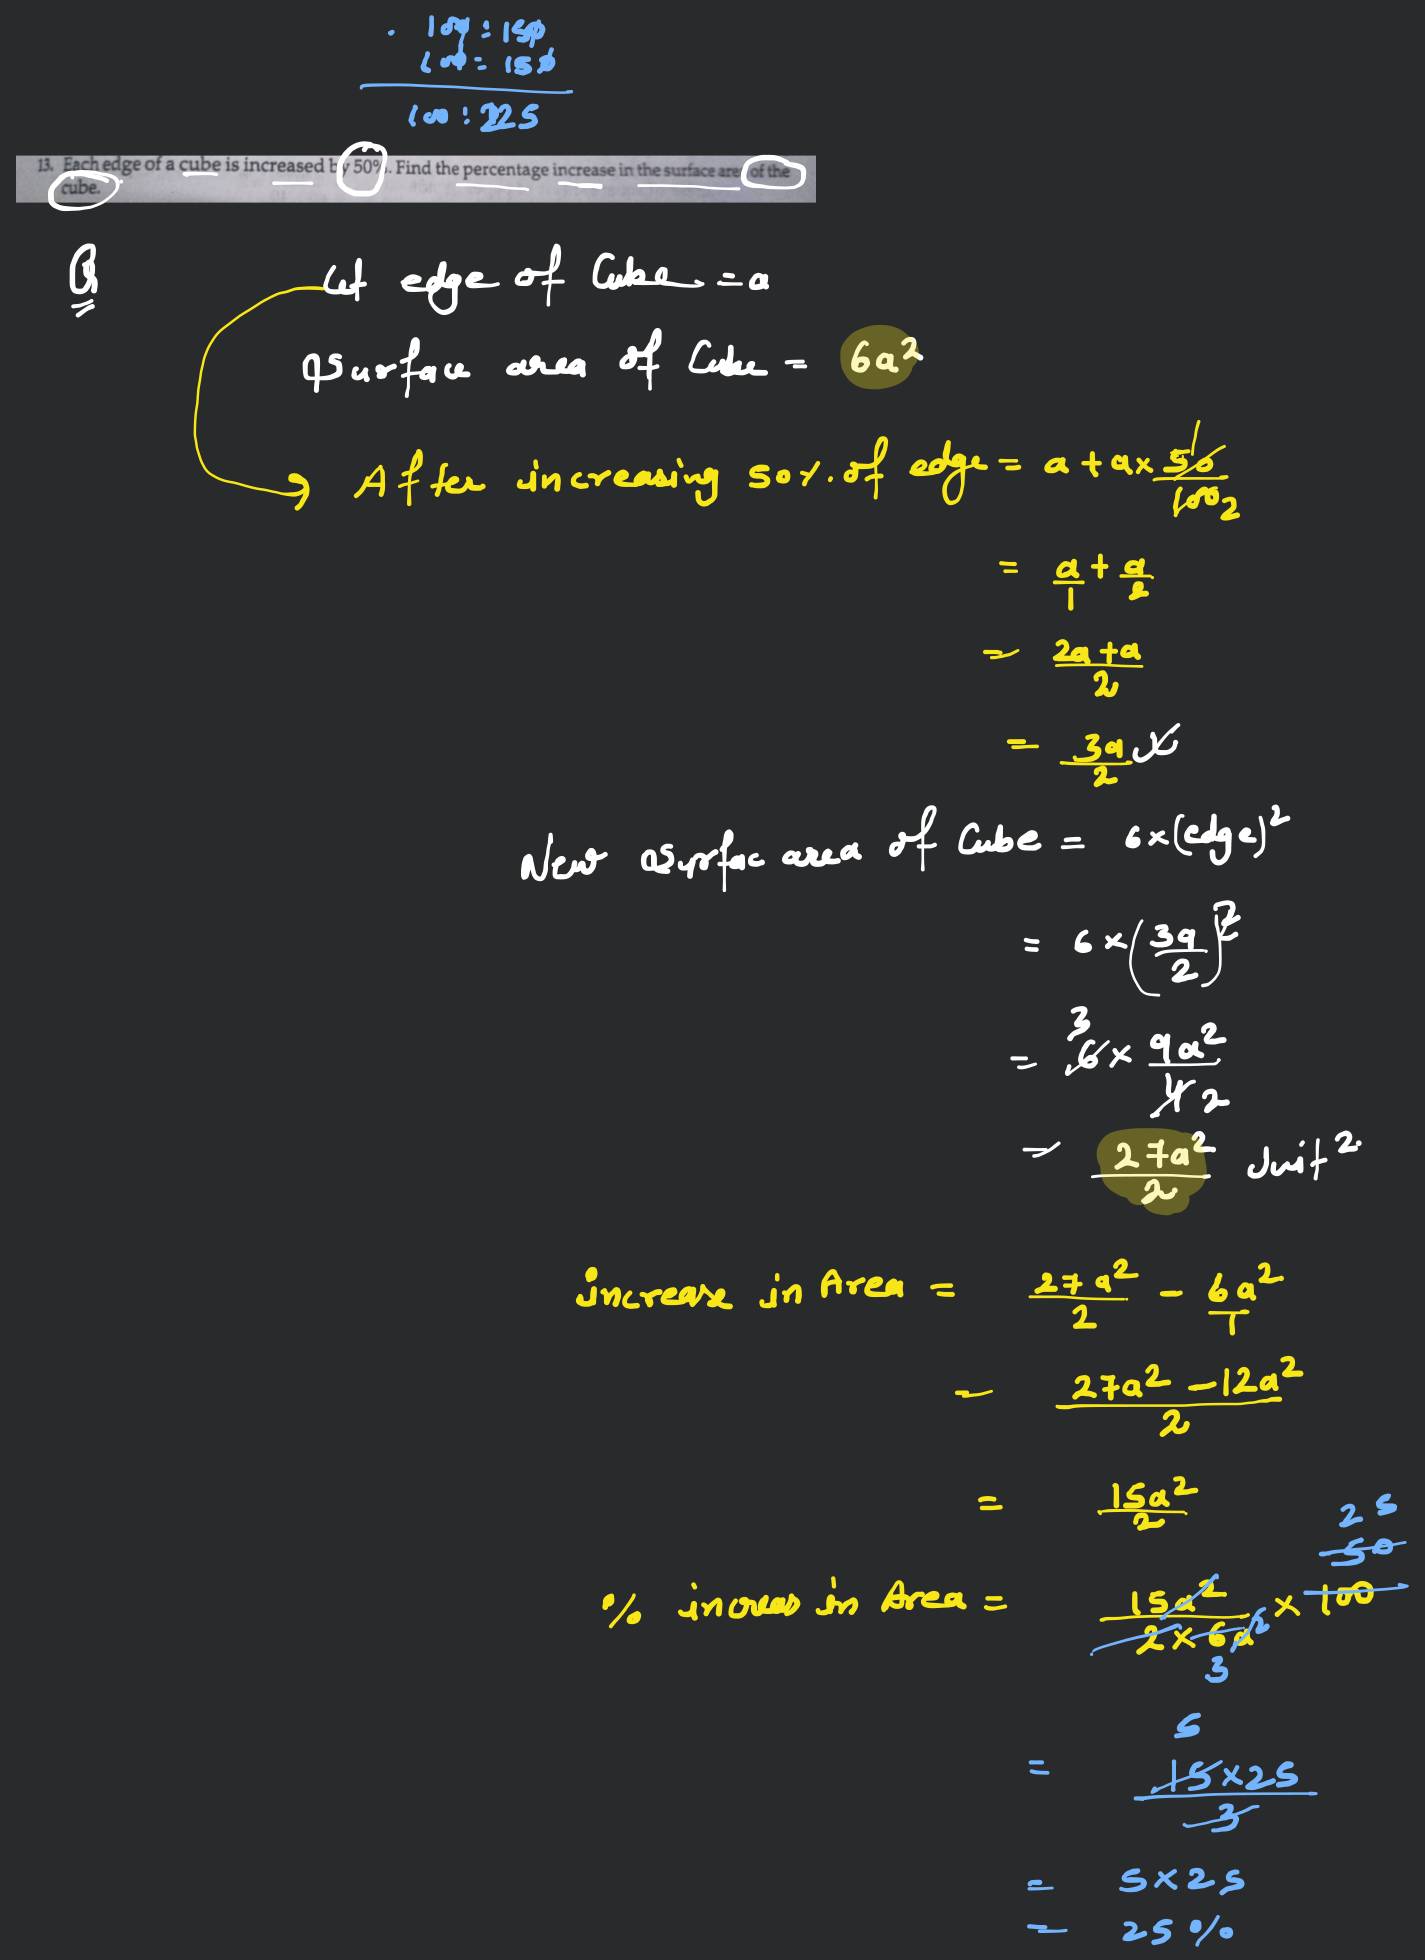 100 : 150
100 : 150
100 : 225
13. Each edge of a cube is increased by 50%. Find the percentage increase in the surface area of the
cube.
Q
Let edge of Cube = a
Surface area of Cube = 6a²
After increasing 50% of edge = a + a × 50/100 1 2
= a/1 + a/2
= 2a + a / 2
= 3a/2
New Surfac area of Cube = 6 × (edge)²
= 6 × (3a/2)²
3
= 6 × 9a²/4 2
= 27a²/2 Unit²
increase in Area = 27a²/2 - 6a²/1
= 27a² - 12a² / 2
= 15a²/2
25
50
% increas in Area = 15a² / 2 × 6a² × 100
3
5
= 15 × 25 / 3
= 5 × 25
= 25%